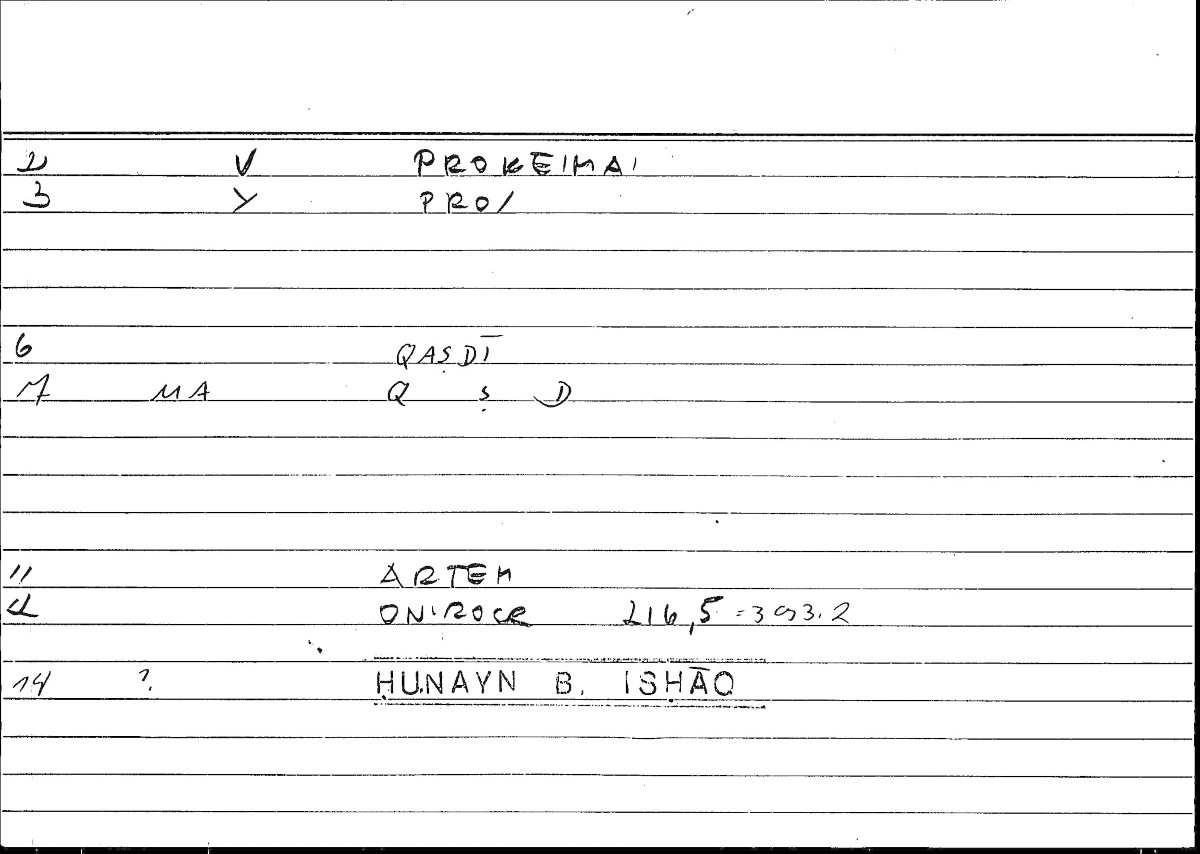 2 V PROKEIMAI
3 Y PRO/
6 QAṢDĪ
7 MA Q Ṣ D
11 ARTEM
12 ONIROCR 216,5 = 393.2
14 ? ḤUNAYN B. ISḤĀQ